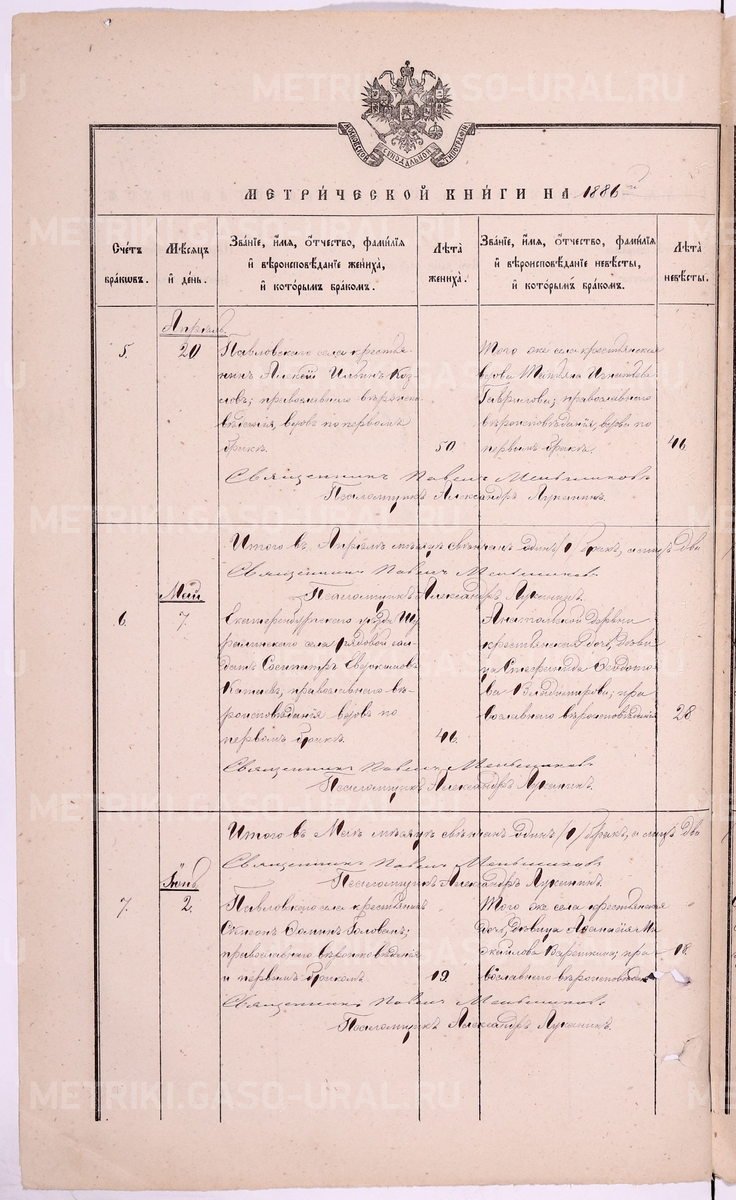 METRIKI.GASO-URAL.RU
МОСКОВСКОЙ СѴНОДАЛЬНОЙ ТИПОГРАФІИ
МЕТРИ́ЧЕСКОЙ КНИ́ГИ НА 1886й
Счетъ браковъ.
Мѣсяцъ и день.
Званіе, имя, отчество, фамилія и вѣроисповѣданіе жениха, и которымъ бракомъ.
Лѣта жениха.
Званіе, имя, отчество, фамилія и вѣроисповѣданіе невѣсты, и которымъ бракомъ.
Лѣта невѣсты.
Апрѣль.
5.
20
Павловскаго села крестья-
нинъ Алексѣй Ильинъ Коз-
ловъ; православнаго вѣроиспо-
вѣданія, вдовъ по первомъ
бракѣ.
50
Того же села крестьянская
вдова Татьяна Игнатьева
Гаврилова; православнаго
вѣроисповѣданія, вдова по
первомъ бракѣ.
46
Священникъ Павелъ Меньшиковъ
Псаломщикъ Александръ Луканинъ.
Итого въ Апрѣлѣ мѣсяцѣ свѣнчанъ одинъ /1/ бракъ, а лицъ два
Священникъ Павелъ Меньшиковъ
Псаломщикъ Александръ Луканинъ.
Май.
6.
7.
Екатеринбургскаго уѣзда
села рядовой сол-
датъ Сосипатръ
Катаевъ, православнаго вѣ-
роисповѣданія вдовъ по
первомъ бракѣ.
46.
деревни
крестьянская дочь, дѣви-
ца Стефанида Ѳедото-
ва Владимирова; пра-
вославнаго вѣроисповѣданія
28
Священникъ Павелъ Меньшиковъ
Псаломщикъ Александръ Луканинъ.
Итого въ Маѣ мѣсяцѣ свѣнчанъ одинъ /1/ бракъ, а лицъ два
Священникъ Павелъ Меньшиковъ
Псаломщикъ Александръ Луканинъ.
Іюнь
7.
2.
Павловскаго села крестьянинъ
Ѳоминъ
православнаго вѣроисповѣданія
и первымъ бракомъ
19.
Того же села крестьянская
дочь, дѣвица Аѳанасія Ми-
хайлова пра-
вославнаго вѣроисповѣданія
18.
Священникъ Павелъ Меньшиковъ
Псаломщикъ Александръ Луканинъ.